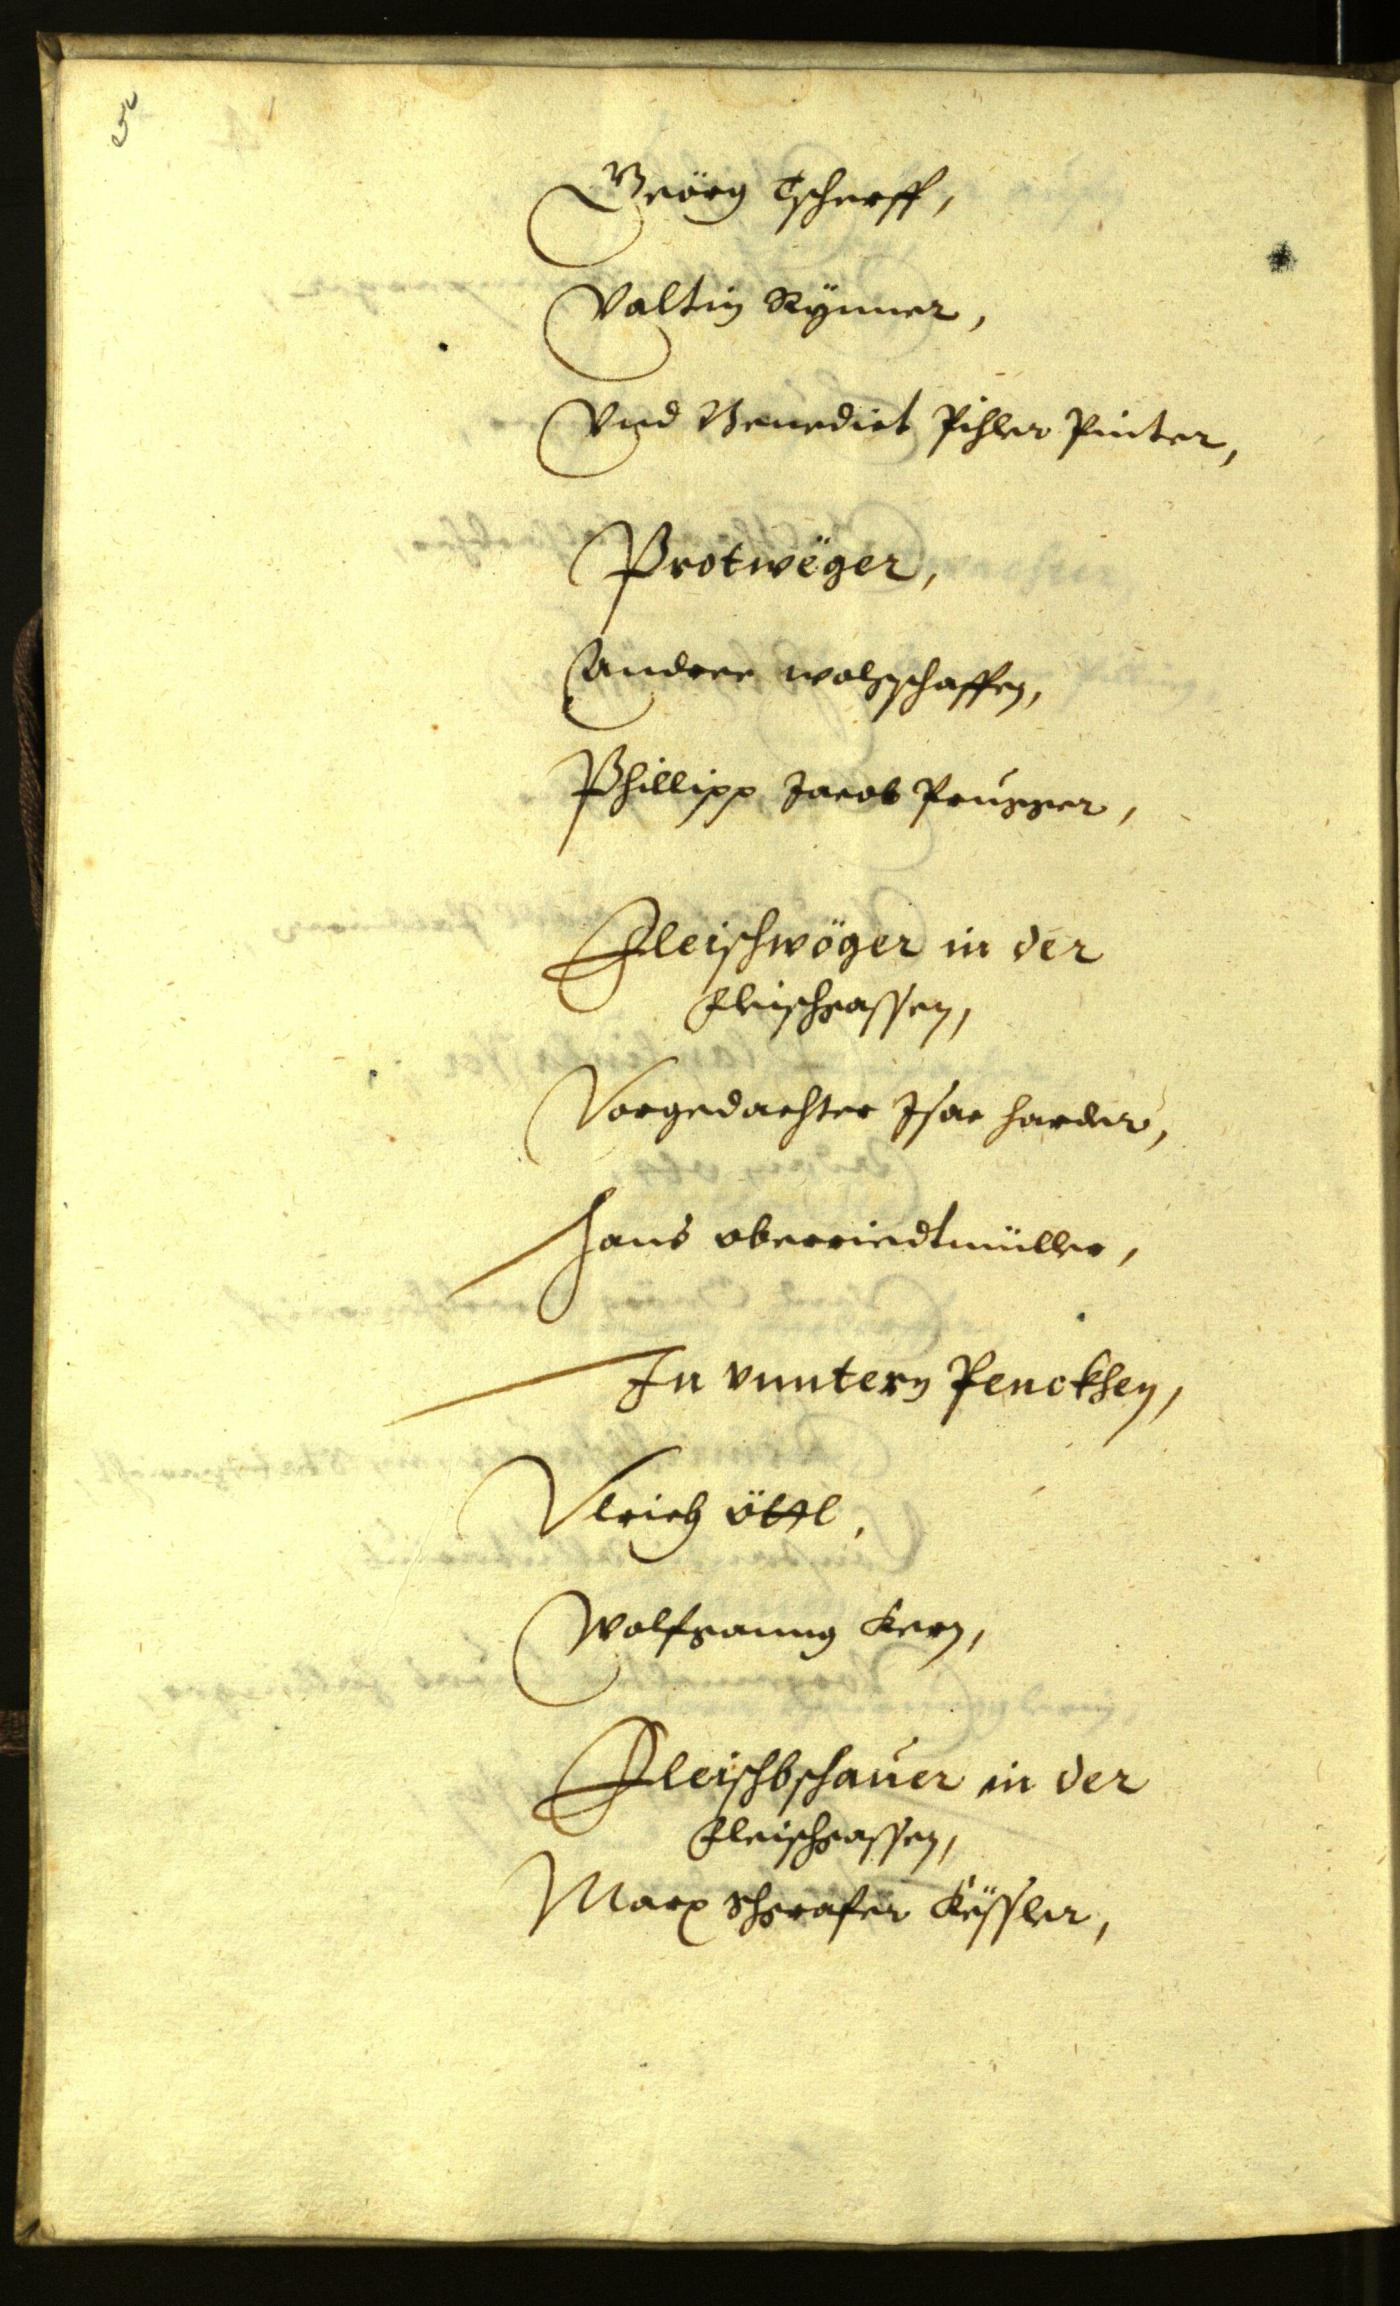 Geörg Tscherff,
Valtin Rÿnner,
Vnd Benedict Pihler Pinter,
Protwëger,
Andree wolgschaffen,
Phillipp Jacob Prugger,
Fleischwöger in der
Fleischgassen,
Vorgedachter Isac Harder,
Hans oberriedtmüller,
In vnntern Penckhen,
Vlrich öttl,
Wolfganng Kern,
Fleischbschauer in der
Fleischgassen,
Marx Schgrafer Këssler,